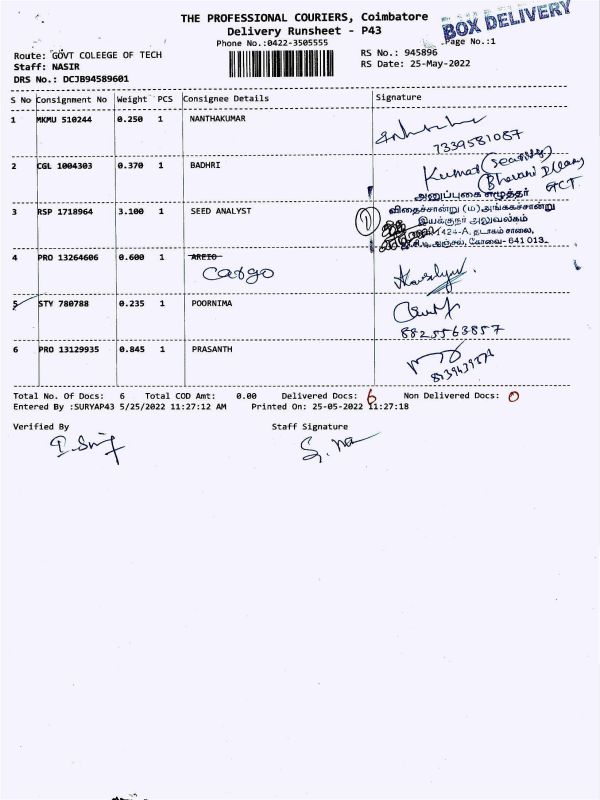 THE PROFESSIONAL COURIERS, Coimbatore
BOX DELIVERY
Delivery Runsheet - P43
Phone No.:0422-3505555
Page No.:1
Route: GOVT COLEEGE OF TECH
RS No.: 945896
Staff: NASIR
RS Date: 25-May-2022
DRS No.: DCJB94589601
S No Consignment No Weight PCS Consignee Details Signature
1 MKMU 510244 0.250 1 NANTHAKUMAR
7339581087
2 CGL 1004303 0.370 1 BADHRI
Kumar (Security)
GCT
அனுப்புகை எழுத்தர்
3 RSP 1718964 3.100 1 SEED ANALYST
விதைச்சான்று (ம) அங்ககச்சான்று
இயக்குநர் அலுவலகம்
1424-A, தடாகம் சாலை,
அஞ்சல், கோவை- 641 013.
4 PRO 13264606 0.600 1 AREIO
Cargo
5 STY 780788 0.235 1 POORNIMA
8825563857
6 PRO 13129935 0.845 1 PRASANTH
Total No. Of Docs: 6 Total COD Amt: 0.00 Delivered Docs: 6 Non Delivered Docs: 0
Entered By :SURYAP43 5/25/2022 11:27:12 AM Printed On: 25-05-2022 11:27:18
Verified By Staff Signature